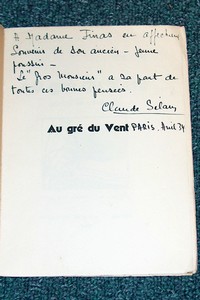 à Madame Finas en affectueux
Souvenir de son ancien - jeune
poussin -
Le "Gros Monsieur" a sa part de
toutes ces bonnes pensées.
Claude Sélan
Au gré du Vent PARIS. Avril 34